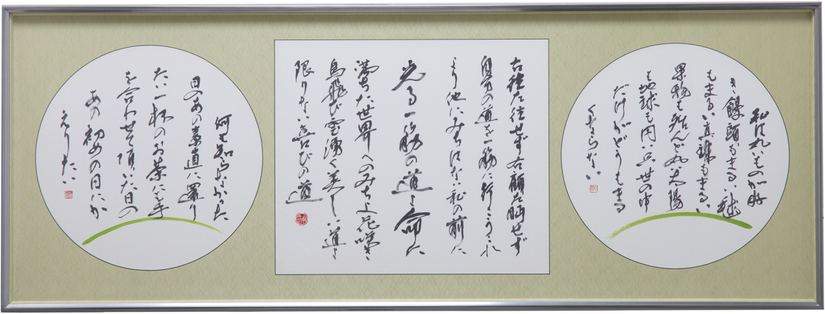 私は丸いものが好
き 饅頭もまるい 毬
もまるい 真珠もまるい
果物も殆んど丸 太陽
も地球も円い只世の中
だけがどうもまる
くならない
右往左往せず右顧左眄せず
自分の道を一筋に行こうこれ
より他にみちはない私の前に
光る一筋の道 命に
満ちた世界へのみち花咲き
鳥飛び雲湧く美しい道
限りない喜びの道
何も知らなかった
日のあの素直に還り
たい一杯のお茶にも手
を合わせて頂いた日の
あの初めの日にか
えりたい